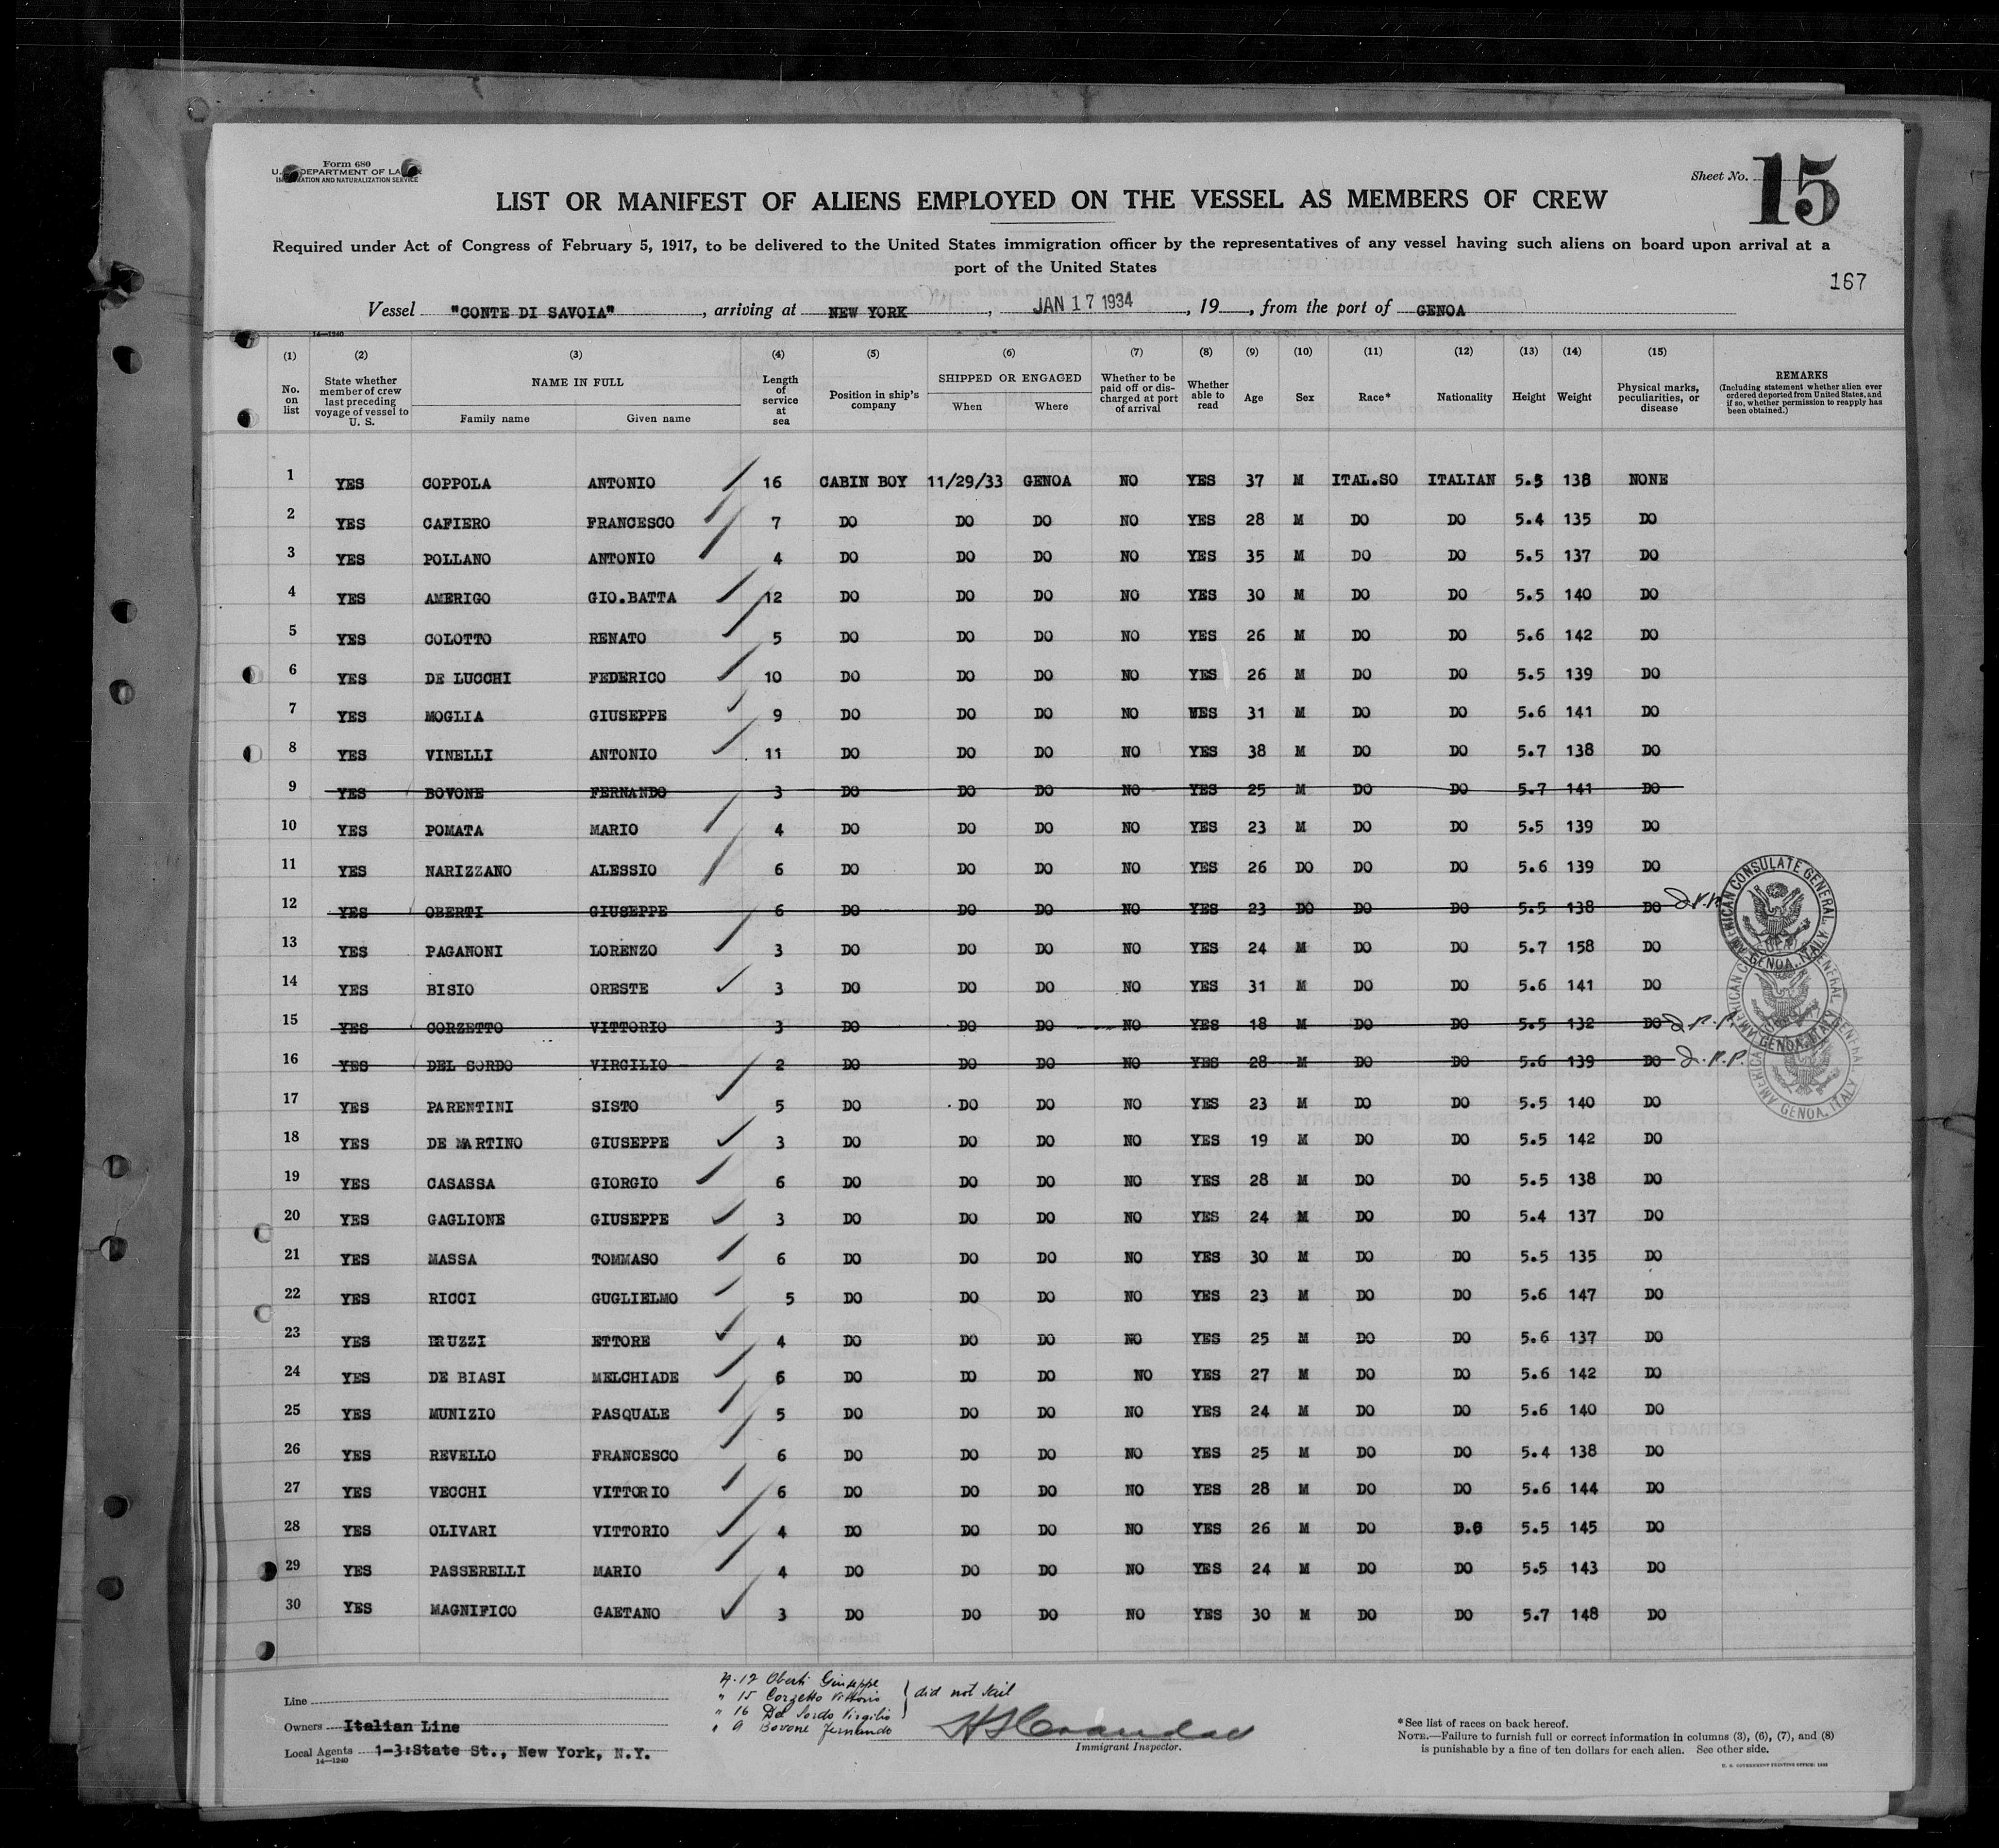 Form 680
U. S. DEPARTMENT OF LABOR
IMMIGRATION AND NATURALIZATION SERVICE
Sheet No. 15
LIST OR MANIFEST OF ALIENS EMPLOYED ON THE VESSEL AS MEMBERS OF CREW
Required under Act of Congress of February 5, 1917, to be delivered to the United States immigration officer by the representatives of any vessel having such aliens on board upon arrival at a
port of the United States
167
Vessel "CONTE DI SAVOIA", arriving at NEW YORK, JAN 17 1934, 19, from the port of GENOA
14—1240
(1) (2) (3) (4) (5) (6) (7) (8) (9) (10) (11) (12) (13) (14) (15)
No. on list State whether member of crew last preceding voyage of vessel to U. S. NAME IN FULL Family name Given name Length of service at sea Position in ship's company SHIPPED OR ENGAGED When Where Whether to be paid off or discharged at port of arrival Whether able to read Age Sex Race* Nationality Height Weight Physical marks, peculiarities, or disease REMARKS (Including statement whether alien ever ordered deported from United States, and if so, whether permission to reapply has been obtained.)
1 YES COPPOLA ANTONIO 16 CABIN BOY 11/29/33 GENOA NO YES 37 M ITAL.SO ITALIAN 5.5 138 NONE
2 YES CAFIERO FRANCESCO 7 DO DO DO NO YES 28 M DO DO 5.4 135 DO
3 YES POLLANO ANTONIO 4 DO DO DO NO YES 35 M DO DO 5.5 137 DO
4 YES AMERIGO GIO.BATTA 12 DO DO DO NO YES 30 M DO DO 5.5 140 DO
5 YES COLOTTO RENATO 5 DO DO DO NO YES 26 M DO DO 5.6 142 DO
6 YES DE LUCCHI FEDERICO 10 DO DO DO NO YES 26 M DO DO 5.5 139 DO
7 YES MOGLIA GIUSEPPE 9 DO DO DO NO YES 31 M DO DO 5.6 141 DO
8 YES VINELLI ANTONIO 11 DO DO DO NO YES 38 M DO DO 5.7 138 DO
9 YES BOVONE FERNANDO 3 DO DO DO NO YES 25 M DO DO 5.7 141 DO
10 YES POMATA MARIO 4 DO DO DO NO YES 23 M DO DO 5.5 139 DO
11 YES NARIZZANO ALESSIO 6 DO DO DO NO YES 26 DO DO DO 5.6 139 DO
12 YES OBERTI GIUSEPPE 6 DO DO DO NO YES 23 DO DO DO 5.5 138 DO
13 YES PAGANONI LORENZO 3 DO DO DO NO YES 24 M DO DO 5.7 158 DO
14 YES BISIO ORESTE 3 DO DO DO NO YES 31 M DO DO 5.6 141 DO
15 YES CORZETTO VITTORIO 3 DO DO DO NO YES 18 M DO DO 5.5 132 DO
16 YES DEL SORDO VIRGILIO 2 DO DO DO NO YES 28 M DO DO 5.6 139 DO
17 YES PARENTINI SISTO 5 DO DO DO NO YES 23 M DO DO 5.5 140 DO
18 YES DE MARTINO GIUSEPPE 3 DO DO DO NO YES 19 M DO DO 5.5 142 DO
19 YES CASASSA GIORGIO 6 DO DO DO NO YES 28 M DO DO 5.5 138 DO
20 YES GAGLIONE GIUSEPPE 3 DO DO DO NO YES 24 M DO DO 5.4 137 DO
21 YES MASSA TOMMASO 6 DO DO DO NO YES 30 M DO DO 5.5 135 DO
22 YES RICCI GUGLIELMO 5 DO DO DO NO YES 23 M DO DO 5.6 147 DO
23 YES ETTORE 4 DO DO DO NO YES 25 M DO DO 5.6 137 DO
24 YES DE BIASI MELCHIADE 6 DO DO DO NO YES 27 M DO DO 5.6 142 DO
25 YES MUNIZIO PASQUALE 5 DO DO DO NO YES 24 M DO DO 5.6 140 DO
26 YES REVELLO FRANCESCO 6 DO DO DO NO YES 25 M DO DO 5.4 138 DO
27 YES VECCHI VITTORIO 6 DO DO DO NO YES 28 M DO DO 5.6 144 DO
28 YES OLIVARI VITTORIO 4 DO DO DO NO YES 26 M DO D.O 5.5 145 DO
29 YES PASSERELLI MARIO 4 DO DO DO NO YES 24 M DO DO 5.5 143 DO
30 YES MAGNIFICO GAETANO 3 DO DO DO NO YES 30 M DO DO 5.7 148 DO
AMERICAN CONSULATE GENERAL. GENOA, ITALY
AMERICAN CONSULATE GENERAL GENOA, ITALY
AMERICAN CONSULATE GENERAL GENOA, ITALY
12 Oberti Giuseppe
" 15 Corzetto Vittorio
" 16 Del Sordo Virgilio
" 9 Bovone Fernando
did not sail
Line
Owners Italian Line
Local Agents 1-3:State St., New York, N.Y.
14—1240
Immigrant Inspector.
*See list of races on back hereof.
NOTE.—Failure to furnish full or correct information in columns (3), (6), (7), and (8)
is punishable by a fine of ten dollars for each alien. See other side.
U. S. GOVERNMENT PRINTING OFFICE: 1933